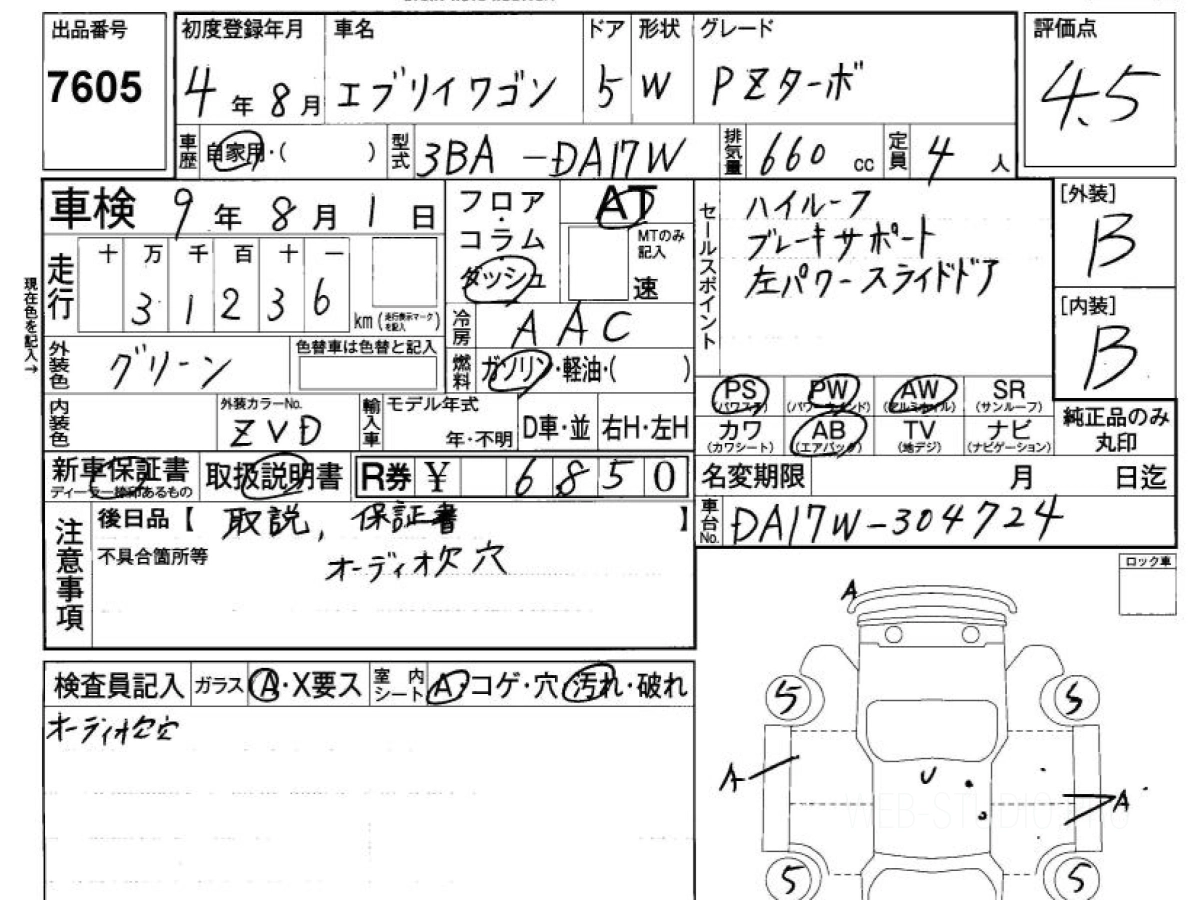 出品番号 初度登録年月 車名 ドア 形状 グレード 評価点
7605 4年8月 エブリイワゴン 5 W PZターボ 4.5
車歴 自家用・( ) 型式 3BA-DA17W 排気量 660cc 定員 4人
車検 9年8月1日 フロア・コラム AT セールスポイント ハイルーフ [外装]
ブレーキサポート B
走行 十 万 千 百 十 一 ダッシュ MTのみ記入 速 左パワースライドドア
3 1 2 3 6 km (走行表示マークを記入) [内装]
現在色を記入→ 冷房 AAC B
外装色 グリーン 色替車は色替と記入 燃料 ガソリン・軽油・( )
PS (パワステ) PW (パワーウインド) AW (アルミホイル) SR (サンルーフ) 純正品のみ丸印
内装色 外装カラーNo. ZVD 輸入車 モデル年式 年・不明 D車・並 右H・左H
カワ (カワシート) AB (エアバッグ) TV (地デジ) ナビ (ナビゲーション)
新車保証書 ディーラー捺印あるもの 取扱説明書 R券 ¥ 6850 名変期限 月 日迄
注意事項 後日品【 取説, 保証書 】 車台No. DA17W-304724
不具合箇所等 オーディオ欠穴
ロック車
A
検査員記入 ガラス A・X要ス 室内シート A・コゲ・穴・汚れ・破れ
5 5
オーディオ欠穴
A U A
WEB-STUDIO
5 5